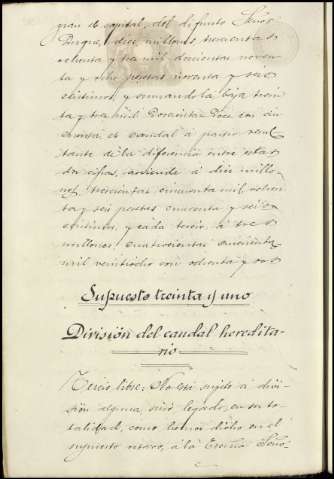 gran el capital, del difunto Señor
Pargá, a diez millones, trescienta s
ochenta y tres mil doscientas noven
ta y ocho pesetas noventa y seis
céntimos, y sumando la baja trein
ta y tres mil
el caudal á partir resul
tante de la diferencia entre estas
dos cifras, asciende á diez millo
nes trescientas cincuenta mil ochen
ta y seis pesetas cuarenta y seis
céntimos, y cada tercio, á tres
millones cuatrocientas cincuenta
mil veintiocho con ochenta y dos
Supuesto treinta y uno
División del caudal heredita-
rio
Tercio libre: No está sujeto á divi-
sión alguna, sino legado, en su to-
talidad, como hemos dicho en el
supuesto octavo, á la Excma Seño-